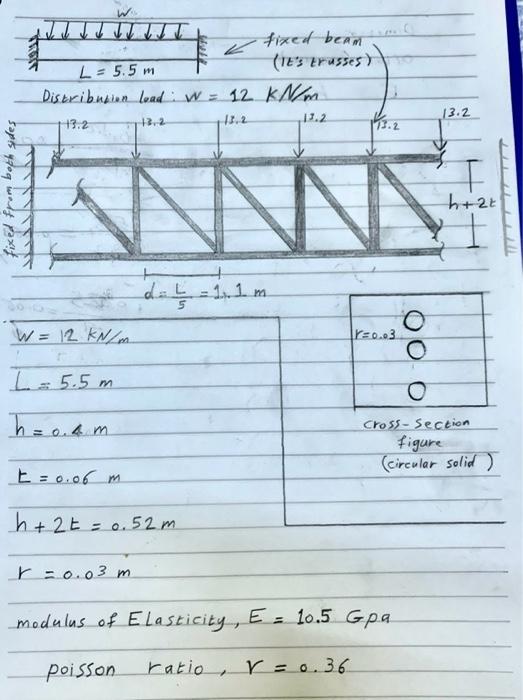 W
fixed beam
(It's trusses)
L = 5.5 m
Distribution load : W = 12 kN/m
13.2 13.2 13.2 13.2 13.2 13.2
fixed from both sides
h+2t
d = L/5 = 1.1 m
W = 12 kN/m
r=0.03
L = 5.5 m
h = 0.4 m
cross-section
figure
(circular solid)
t = 0.06 m
h + 2t = 0.52 m
r = 0.03 m
modulus of Elasticity, E = 10.5 Gpa
poisson ratio, v = 0.36